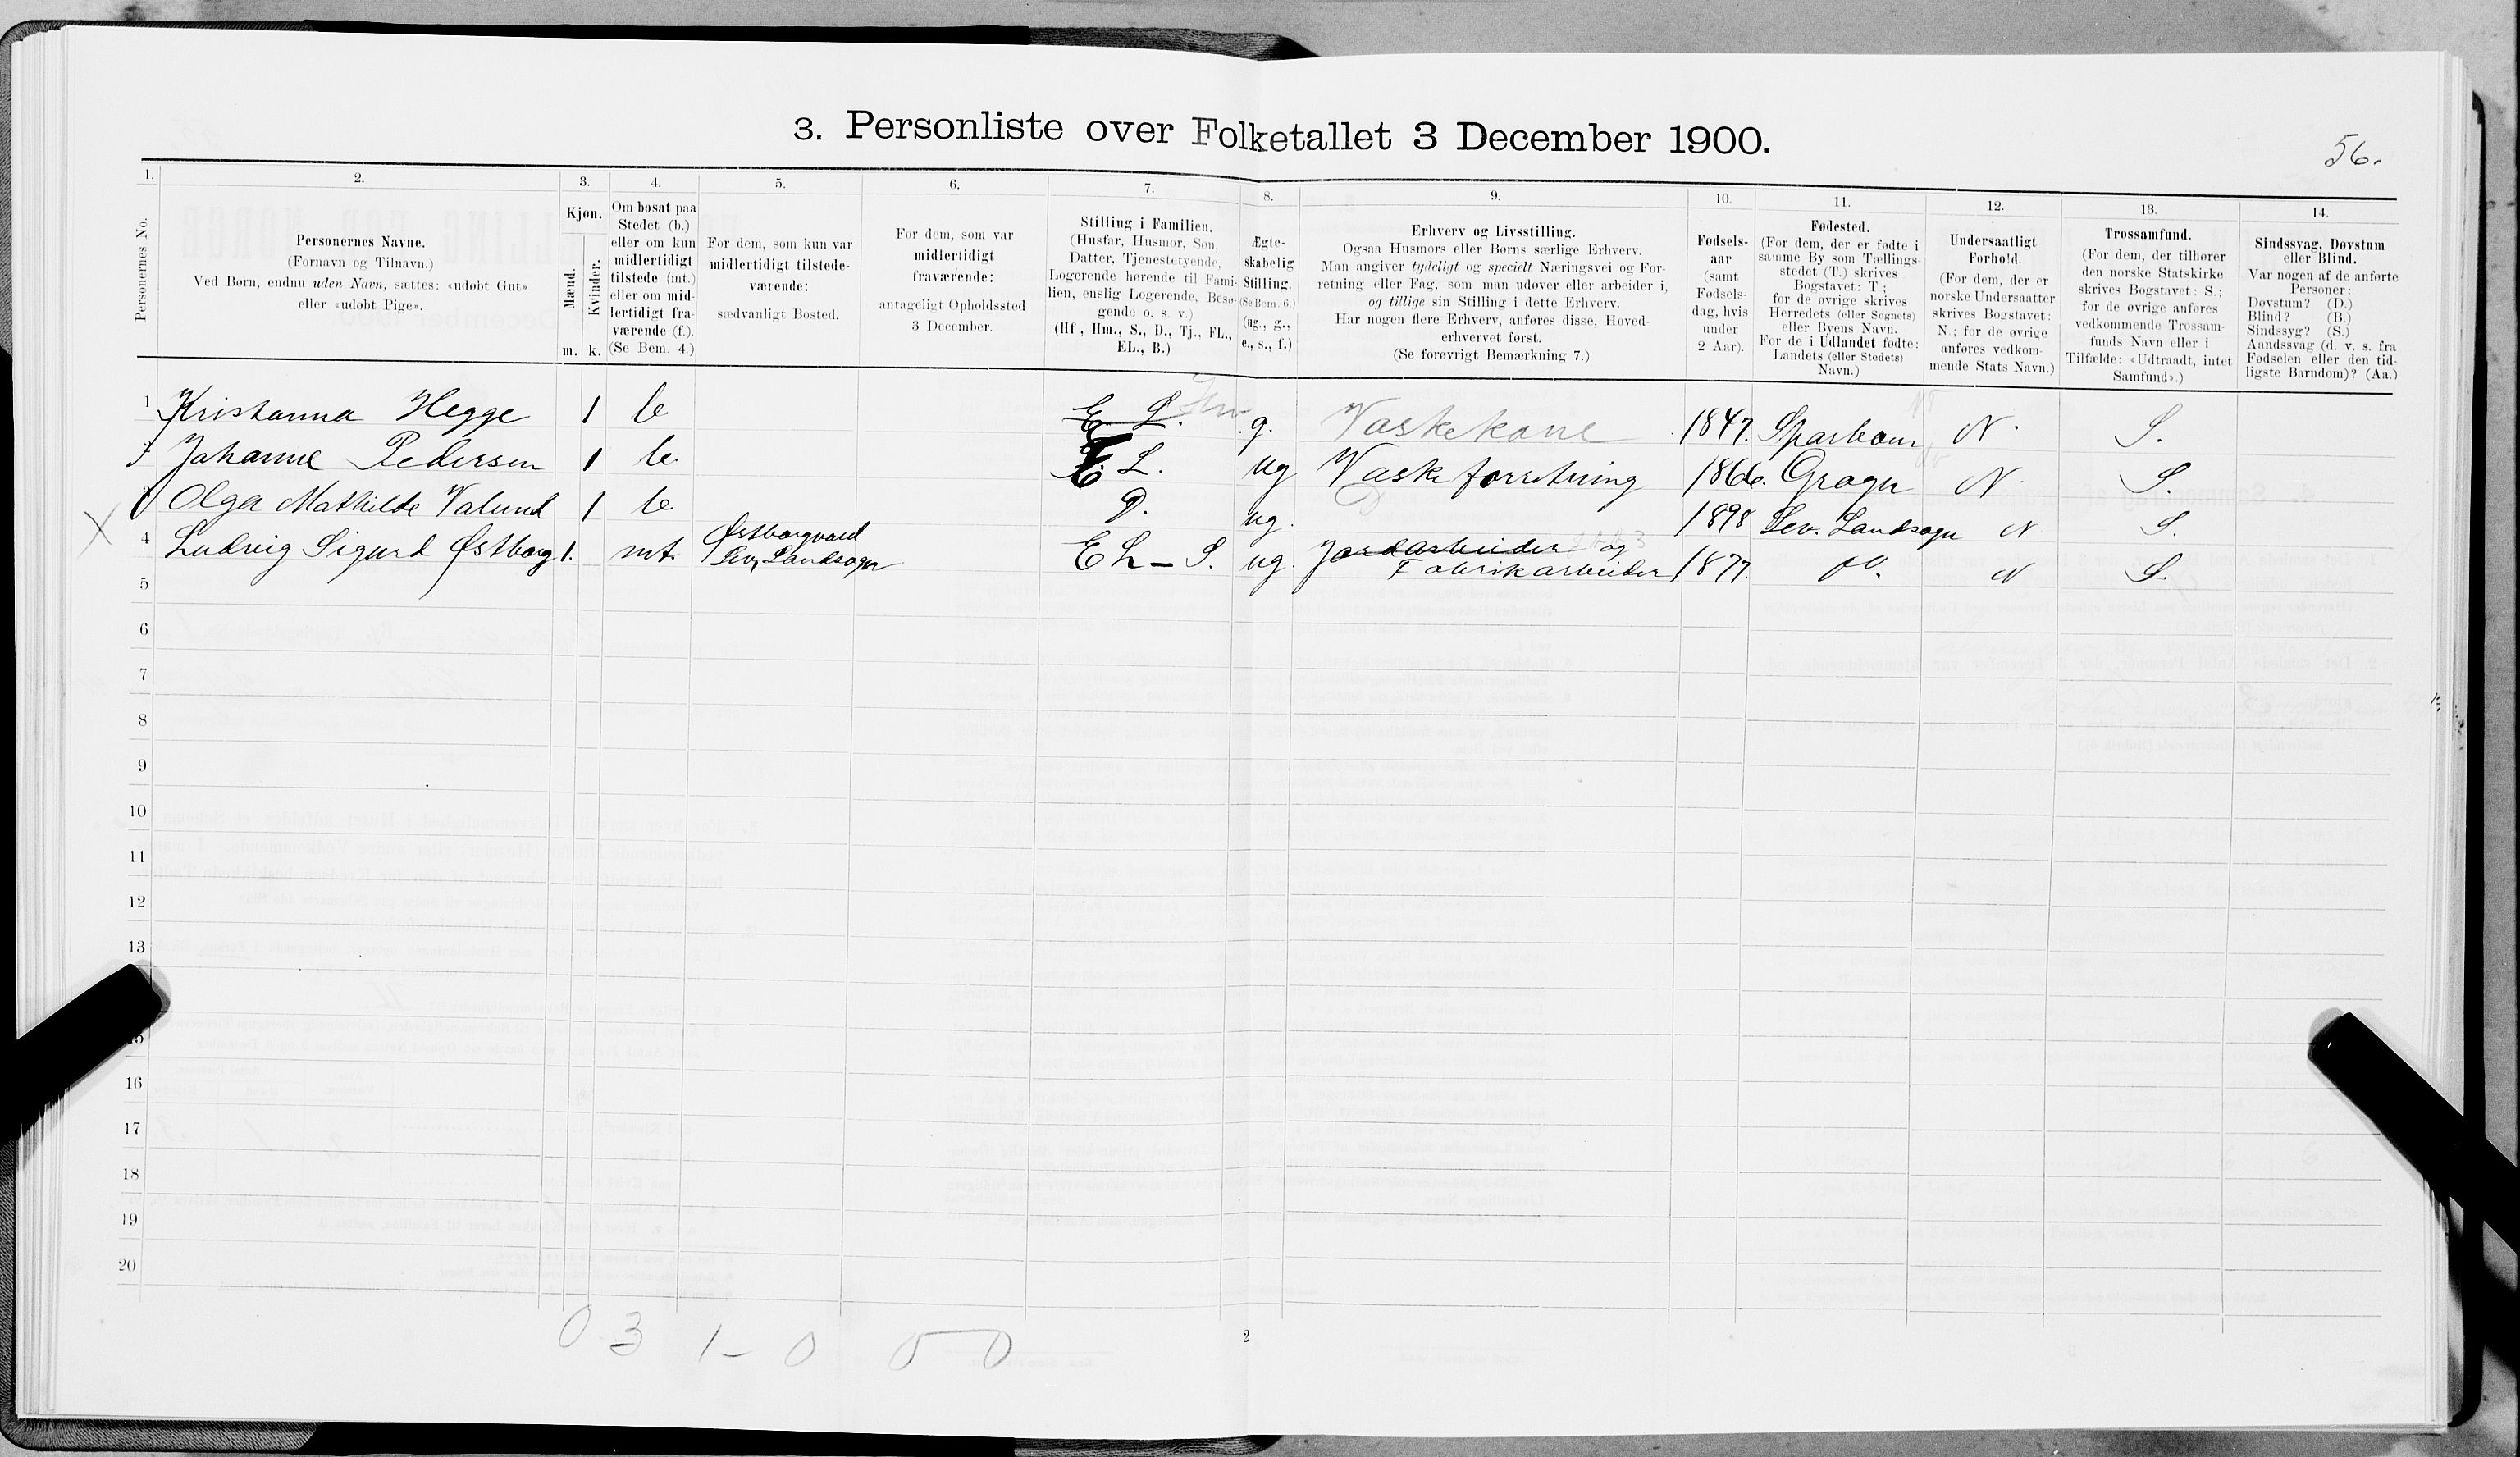 3. Personliste over Folketallet 3 December 1900.
56.
1.
2.
3.
4.
5.
6.
7.
8.
9.
10.
11.
12.
13.
14.
Personernes No.
Personernes Navne.
(Fornavn og Tilnavn.)
Ved Børn, endnu uden Navn, sættes: «udøbt Gut»
eller «udøbt Pige».
Kjøn.
Mænd.
Kvinder.
m. k.
Om bosat paa
Stedet (b.)
eller om kun
midlertidigt
tilstede (mt.)
eller om mid-
lertidigt fra-
værende (f.).
(Se Bem. 4.)
For dem, som kun var
midlertidigt tilstede-
værende:
sædvanligt Bosted.
For dem, som var
midlertidigt
fraværende:
antageligt Opholdssted
3 December.
Stilling i Familien.
(Husfar, Husmor, Søn,
Datter, Tjenestetyende,
Logerende hørende til Fami-
lien, enslig Logerende, Besø-
gende o. s. v.)
(Hf., Hm., S., D., Tj., FL.,
EL., B.)
Ægte-
skabelig
Stilling.
(Se Bem. 6.)
(ug., g.,
e., s., f.)
Erhverv og Livsstilling.
Ogsaa Husmors eller Børns særlige Erhverv.
Man angiver tydeligt og specielt Næringsvei og For-
retning eller Fag, som man udøver eller arbeider i,
og tillige sin Stilling i dette Erhverv.
Har nogen flere Erhverv, anføres disse, Hoved-
erhvervet først.
(Se forøvrigt Bemærkning 7.)
Fødsels-
aar
(samt
Fødsels-
dag, hvis
under
2 Aar).
Fødested.
(For dem, der er fødte i
samme By som Tællings-
stedet (T.) skrives
Bogstavet: T ;
for de øvrige skrives
Herredets (eller Sognets)
eller Byens Navn.
For de i Udlandet fødte:
Landets (eller Stedets)
Navn.)
Undersaatligt
Forhold.
(For dem, der er
norske Undersaatter
skrives Bogstavet:
N.; for de øvrige
anføres vedkom-
mende Stats Navn.)
Trossamfund.
(For dem, der tilhører
den norske Statskirke
skrives Bogstavet: S.;
for de øvrige anføres
vedkommende Trossam-
funds Navn eller i
Tilfælde: «Udtraadt, intet
Samfund».)
Sindssvag, Døvstum
eller Blind.
Var nogen af de anførte
Personer:
Døvstum? (D.)
Blind? (B.)
Sindssyg? (S.)
Aandssvag (d. v. s. fra
Fødselen eller den tid-
ligste Barndom)? (Aa.)
1 Kristianna Hegge 1 b E L. g. Vaskekone 1847. Sparbøun N. S.
Johanne Pedersen 1 b. E L. ug Vaskeforretning 1866. Grogn N. S.
Olga Mathilde Valund 1 b D. ug. 1898 Lev. Landsogn N S.
X 4 Ludvig Sigurd Østborg 1. mt. Østborgvald
Lev. Landsogn EL - S. ug. Jordarbeider og
Fabrikarbeider 1877. do. N S.
5
6
7
8
9
10
11
12
13
15
16
17
18
19
20
0 3 1 - 0 0 0
2